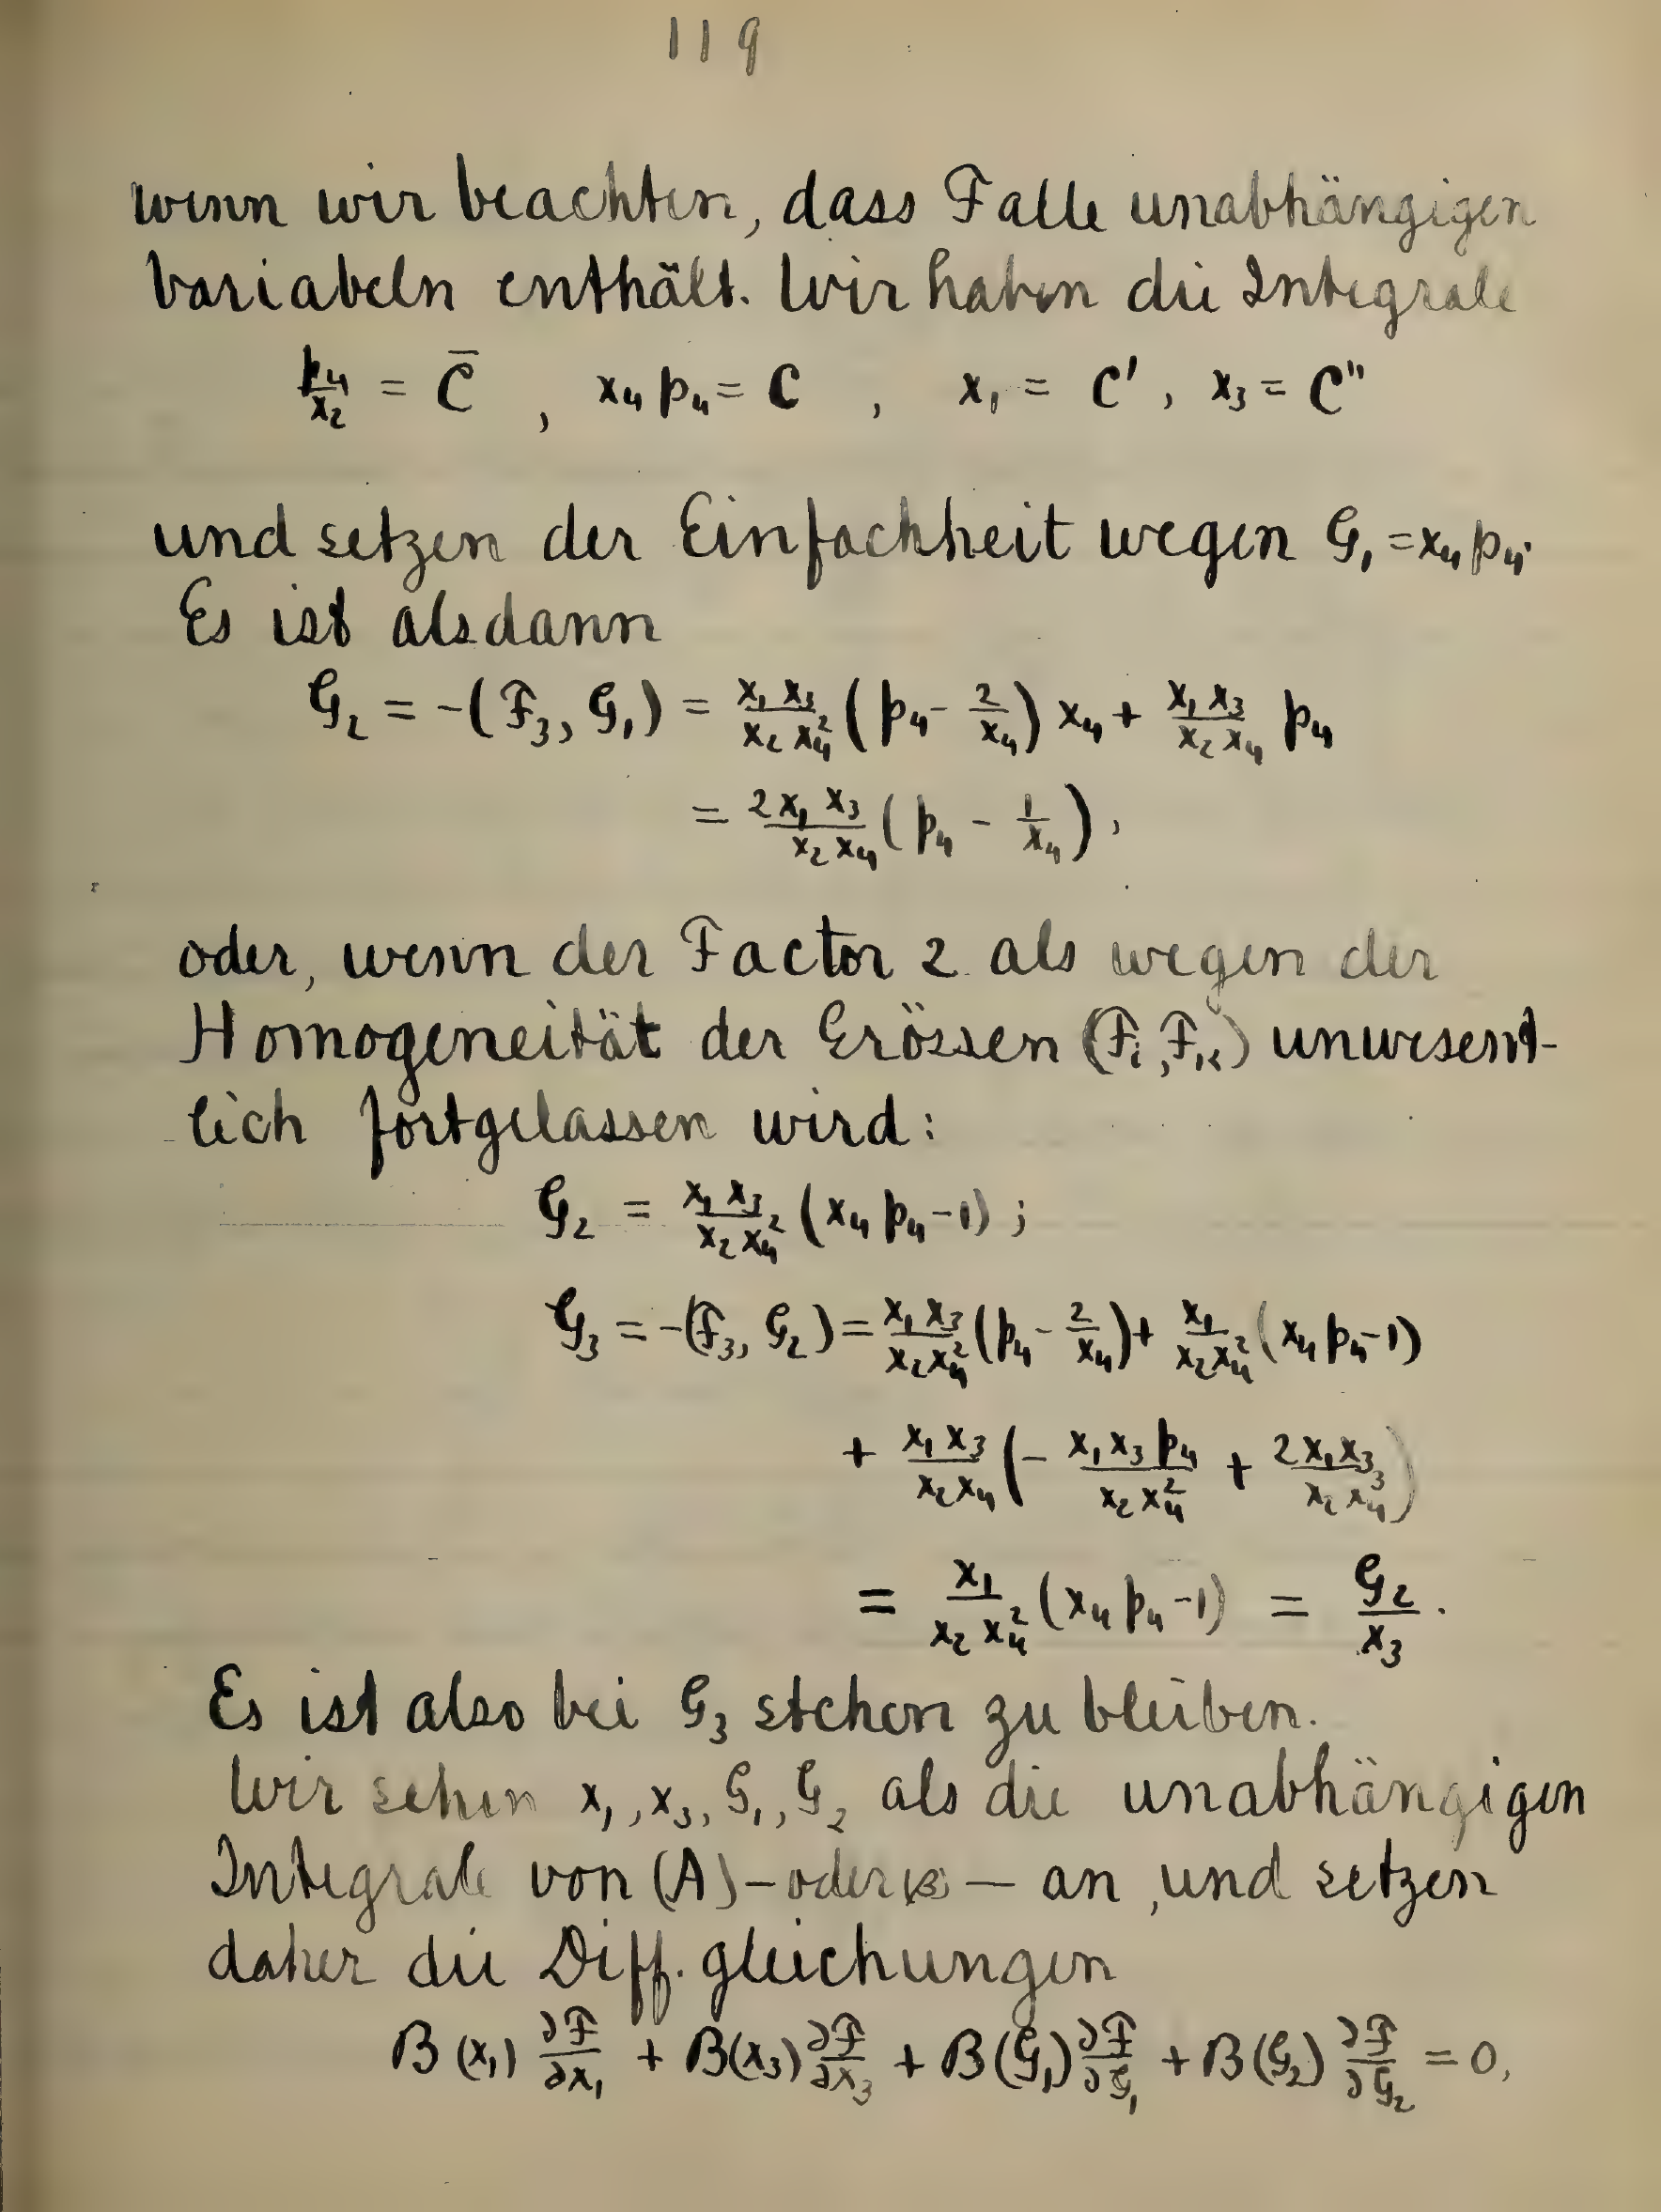 119
wenn wir beachten, dass F alle unabhängigen
Variabeln enthält. Wir haben die Integrale
p₄/x₂ = C̄ , x₄ p₄ = C , x₁ = C′ , x₃ = C″
und setzen der Einfachheit wegen G₁ = x₄ p₄.
Es ist alsdann
G₂ = -(F₃, G₁) = x₁ x₃/x₂ x₄² (p₄ - 2/x₄) x₄ + x₁ x₃/x₂ x₄ p₄
= 2 x₁ x₃/x₂ x₄ (p₄ - 1/x₄),
oder, wenn der Factor 2 als wegen der
Homogeneität der Grössen (Fᵢ, Fₖ) unwesent-
lich fortgelassen wird:
G₂ = x₁ x₃/x₂ x₄² (x₄ p₄ - 1) ;
G₃ = -(F₃, G₂) = x₁ x₃/x₂ x₄² (p₄ - 2/x₄) + x₁/x₂ x₄² (x₄ p₄ - 1)
+ x₁ x₃/x₂ x₄ (- x₁ x₃ p₄/x₂ x₄² + 2 x₁ x₃/x₂ x₄³)
= x₁/x₂ x₄² (x₄ p₄ - 1) = G₂/x₃ .
Es ist also bei G₃ stehen zu bleiben.
Wir sehen x₁, x₃, G₁, G₂ als die unabhängigen
Integrale von (A) – oder B – an, und setzen
daher die Diff. gleichungen
B(x₁) ∂F/∂x₁ + B(x₃) ∂F/∂x₃ + B(G₁) ∂F/∂G₁ + B(G₂) ∂F/∂G₂ = 0,